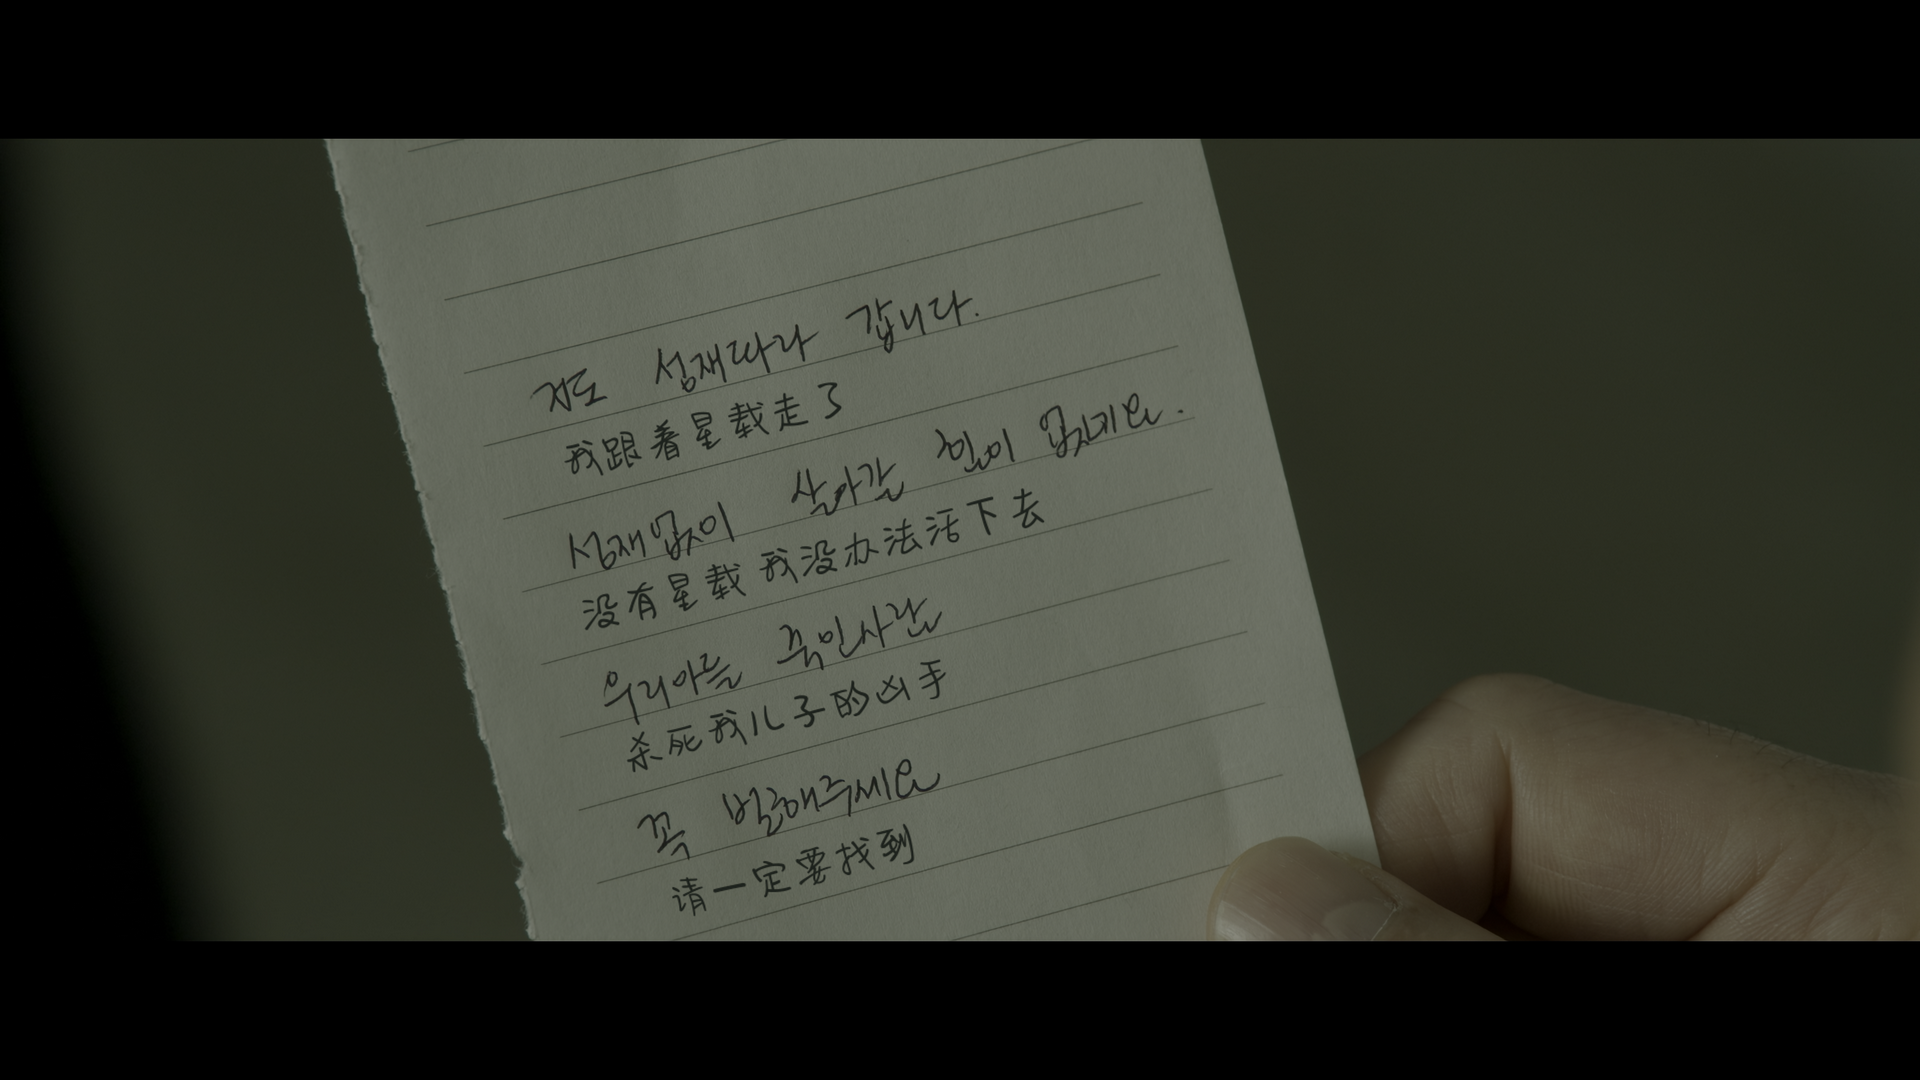 저도 성재따라 갑니다.
我跟着星载走了
성재없이 살아갈 힘이 없네요.
没有星载 我没办法活下去
우리아들 죽인사람
杀死我儿子的凶手
꼭 벌해주세요
请一定要找到